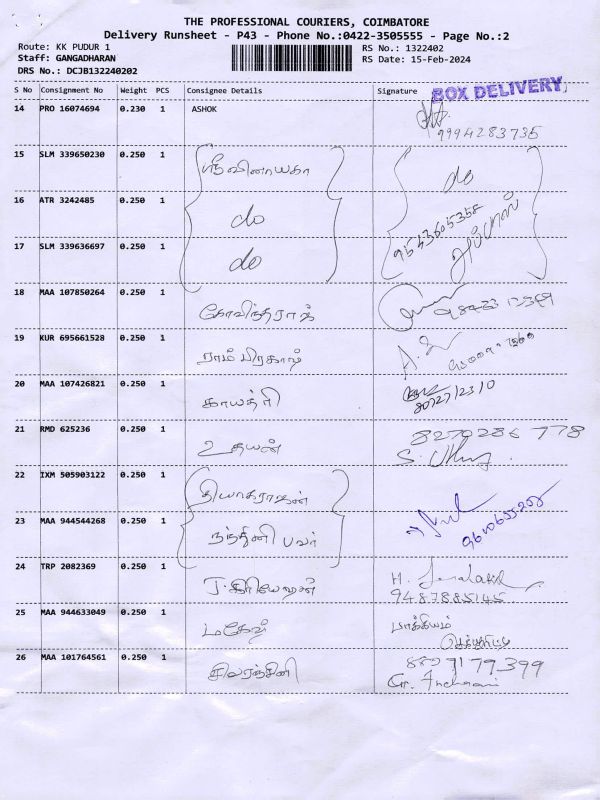 THE PROFESSIONAL COURIERS, COIMBATORE
Delivery Runsheet - P43 - Phone No.:0422-3505555 - Page No.:2
Route: KK PUDUR 1 RS No.: 1322402
Staff: GANGADHARAN RS Date: 15-Feb-2024
DRS No.: DCJB132240202
S No Consignment No Weight PCS Consignee Details Signature BOX DELIVERY
14 PRO 16074694 0.230 1 ASHOK
9994283735
15 SLM 339650230 0.250 1 ஸ்ரீவிநாயகா do
16 ATR 3242485 0.250 1 do 9543605358
17 SLM 339636697 0.250 1 do
18 MAA 107850264 0.250 1 கோவிந்தராஜ்
19 KUR 695661528 0.250 1 ராம் பிரகாஷ்
20 MAA 107426821 0.250 1 காயத்ரி
21 RMD 625236 0.250 1 உதயன் 8270286778
22 IXM 505903122 0.250 1 தியாகராஜன்
23 MAA 944544268 0.250 1 நந்தினி பவர்
24 TRP 2082369 0.250 1 H.
9487885145
25 MAA 944633049 0.250 1 மகேஷ் பாக்கியம்
26 MAA 101764561 0.250 1 சிவரஞ்சினி